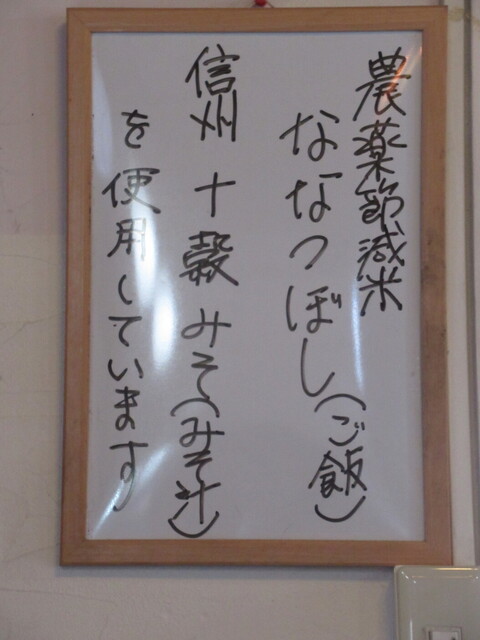 農薬節減米
ななつぼし(ご飯)
信州十穀みそ(みそ汁)
を使用しています